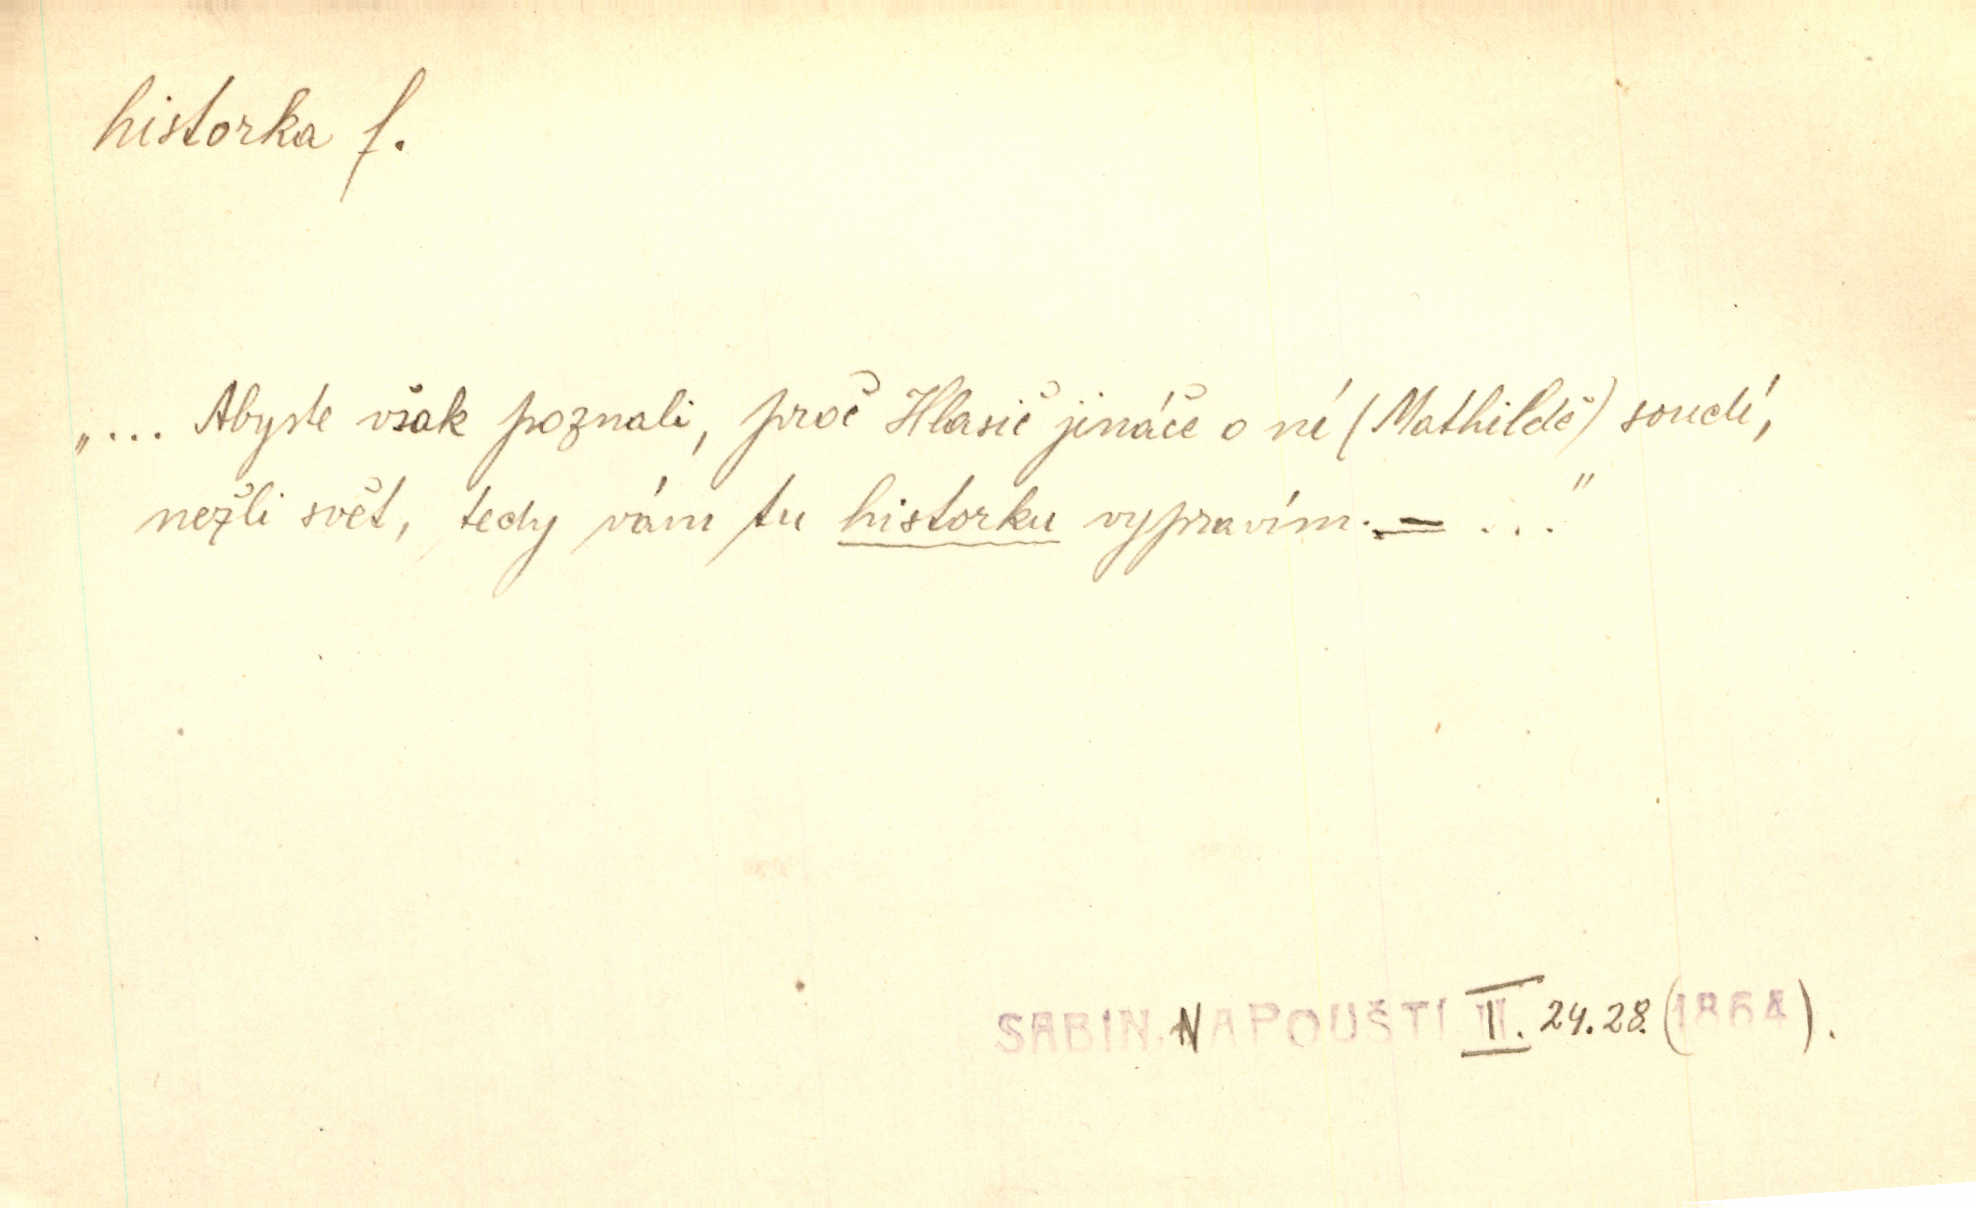 historka f.
„... Abyste však poznali, proč Hlasič jináče o ní (Mathildě) soudí,
nežli svět, tedy vám tu historku vypravím. — ..."
SABIN. NA POUŠTI II. 24.28. (1864).